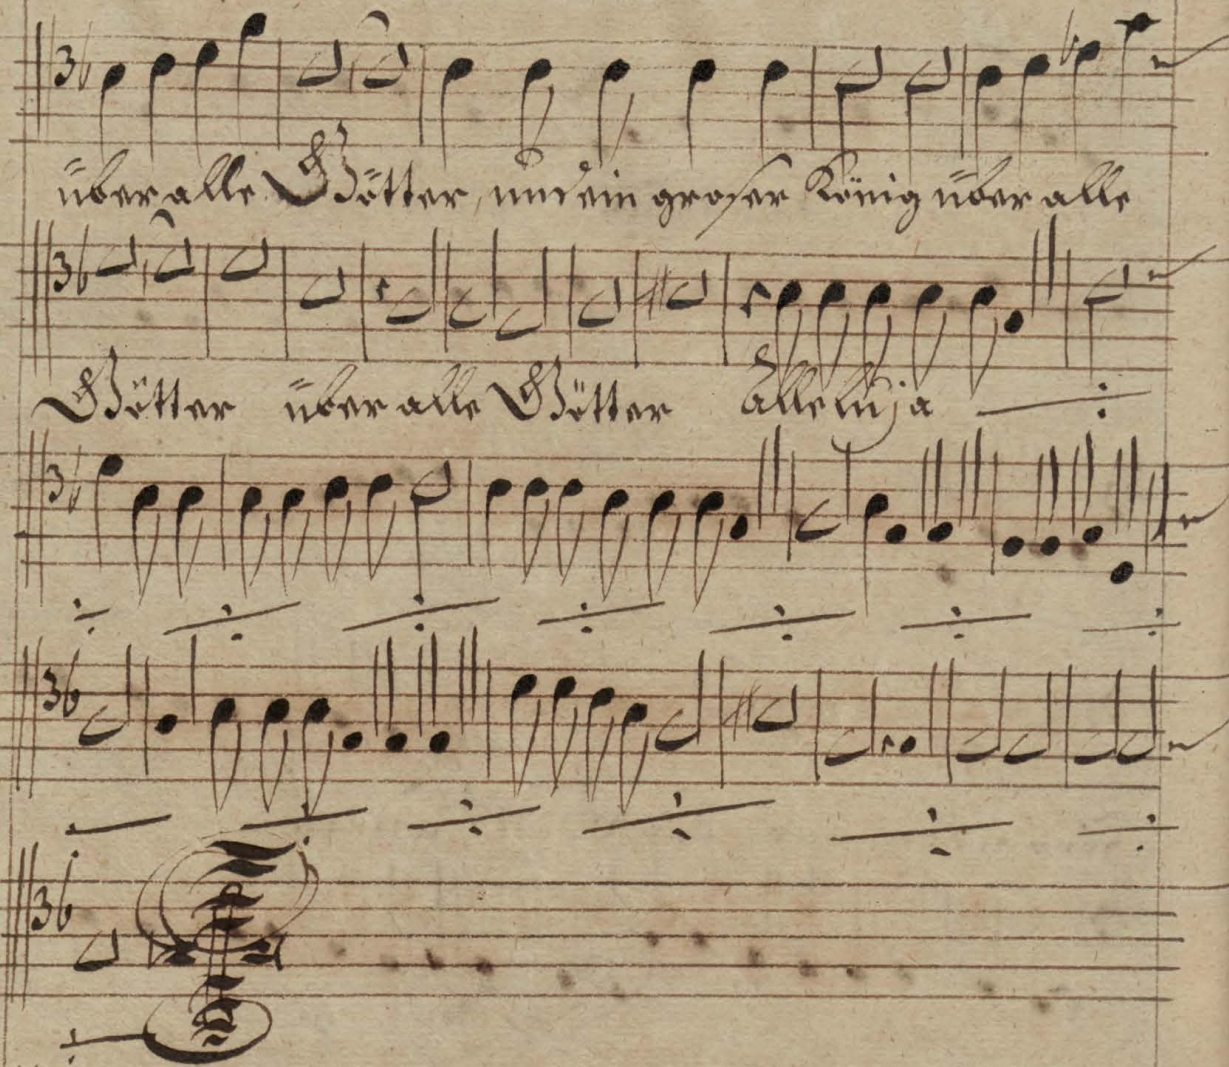 über alle Götter, und ein groser König über alle
Götter über alle Götter Alleluja